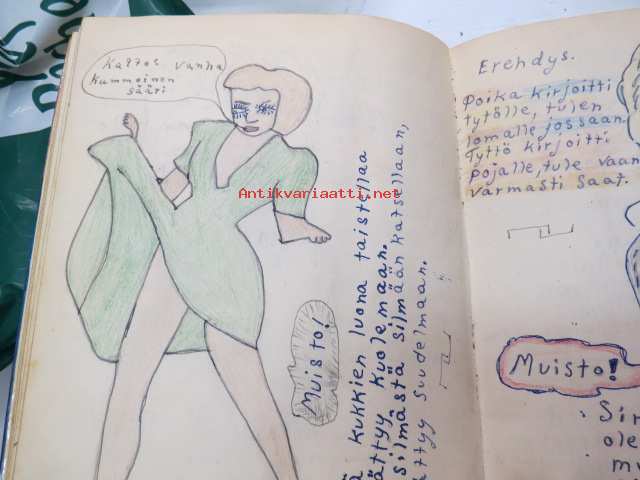 Katsos vanha
kummoinen
sääri
Antikvariaatti.net
Muisto!
kukkien luona taistellaa
ättyy kuolemaan.
silmästä silmään katsellaan,
ättyy suudelmaan.
Erehdys.
Poika kirjoitti
tytölle, tulen
lomalle jossaan
Tyttö kirjoitti
pojalle, tule vaan
varmasti saat.
Muisto!
Sin
ole
my